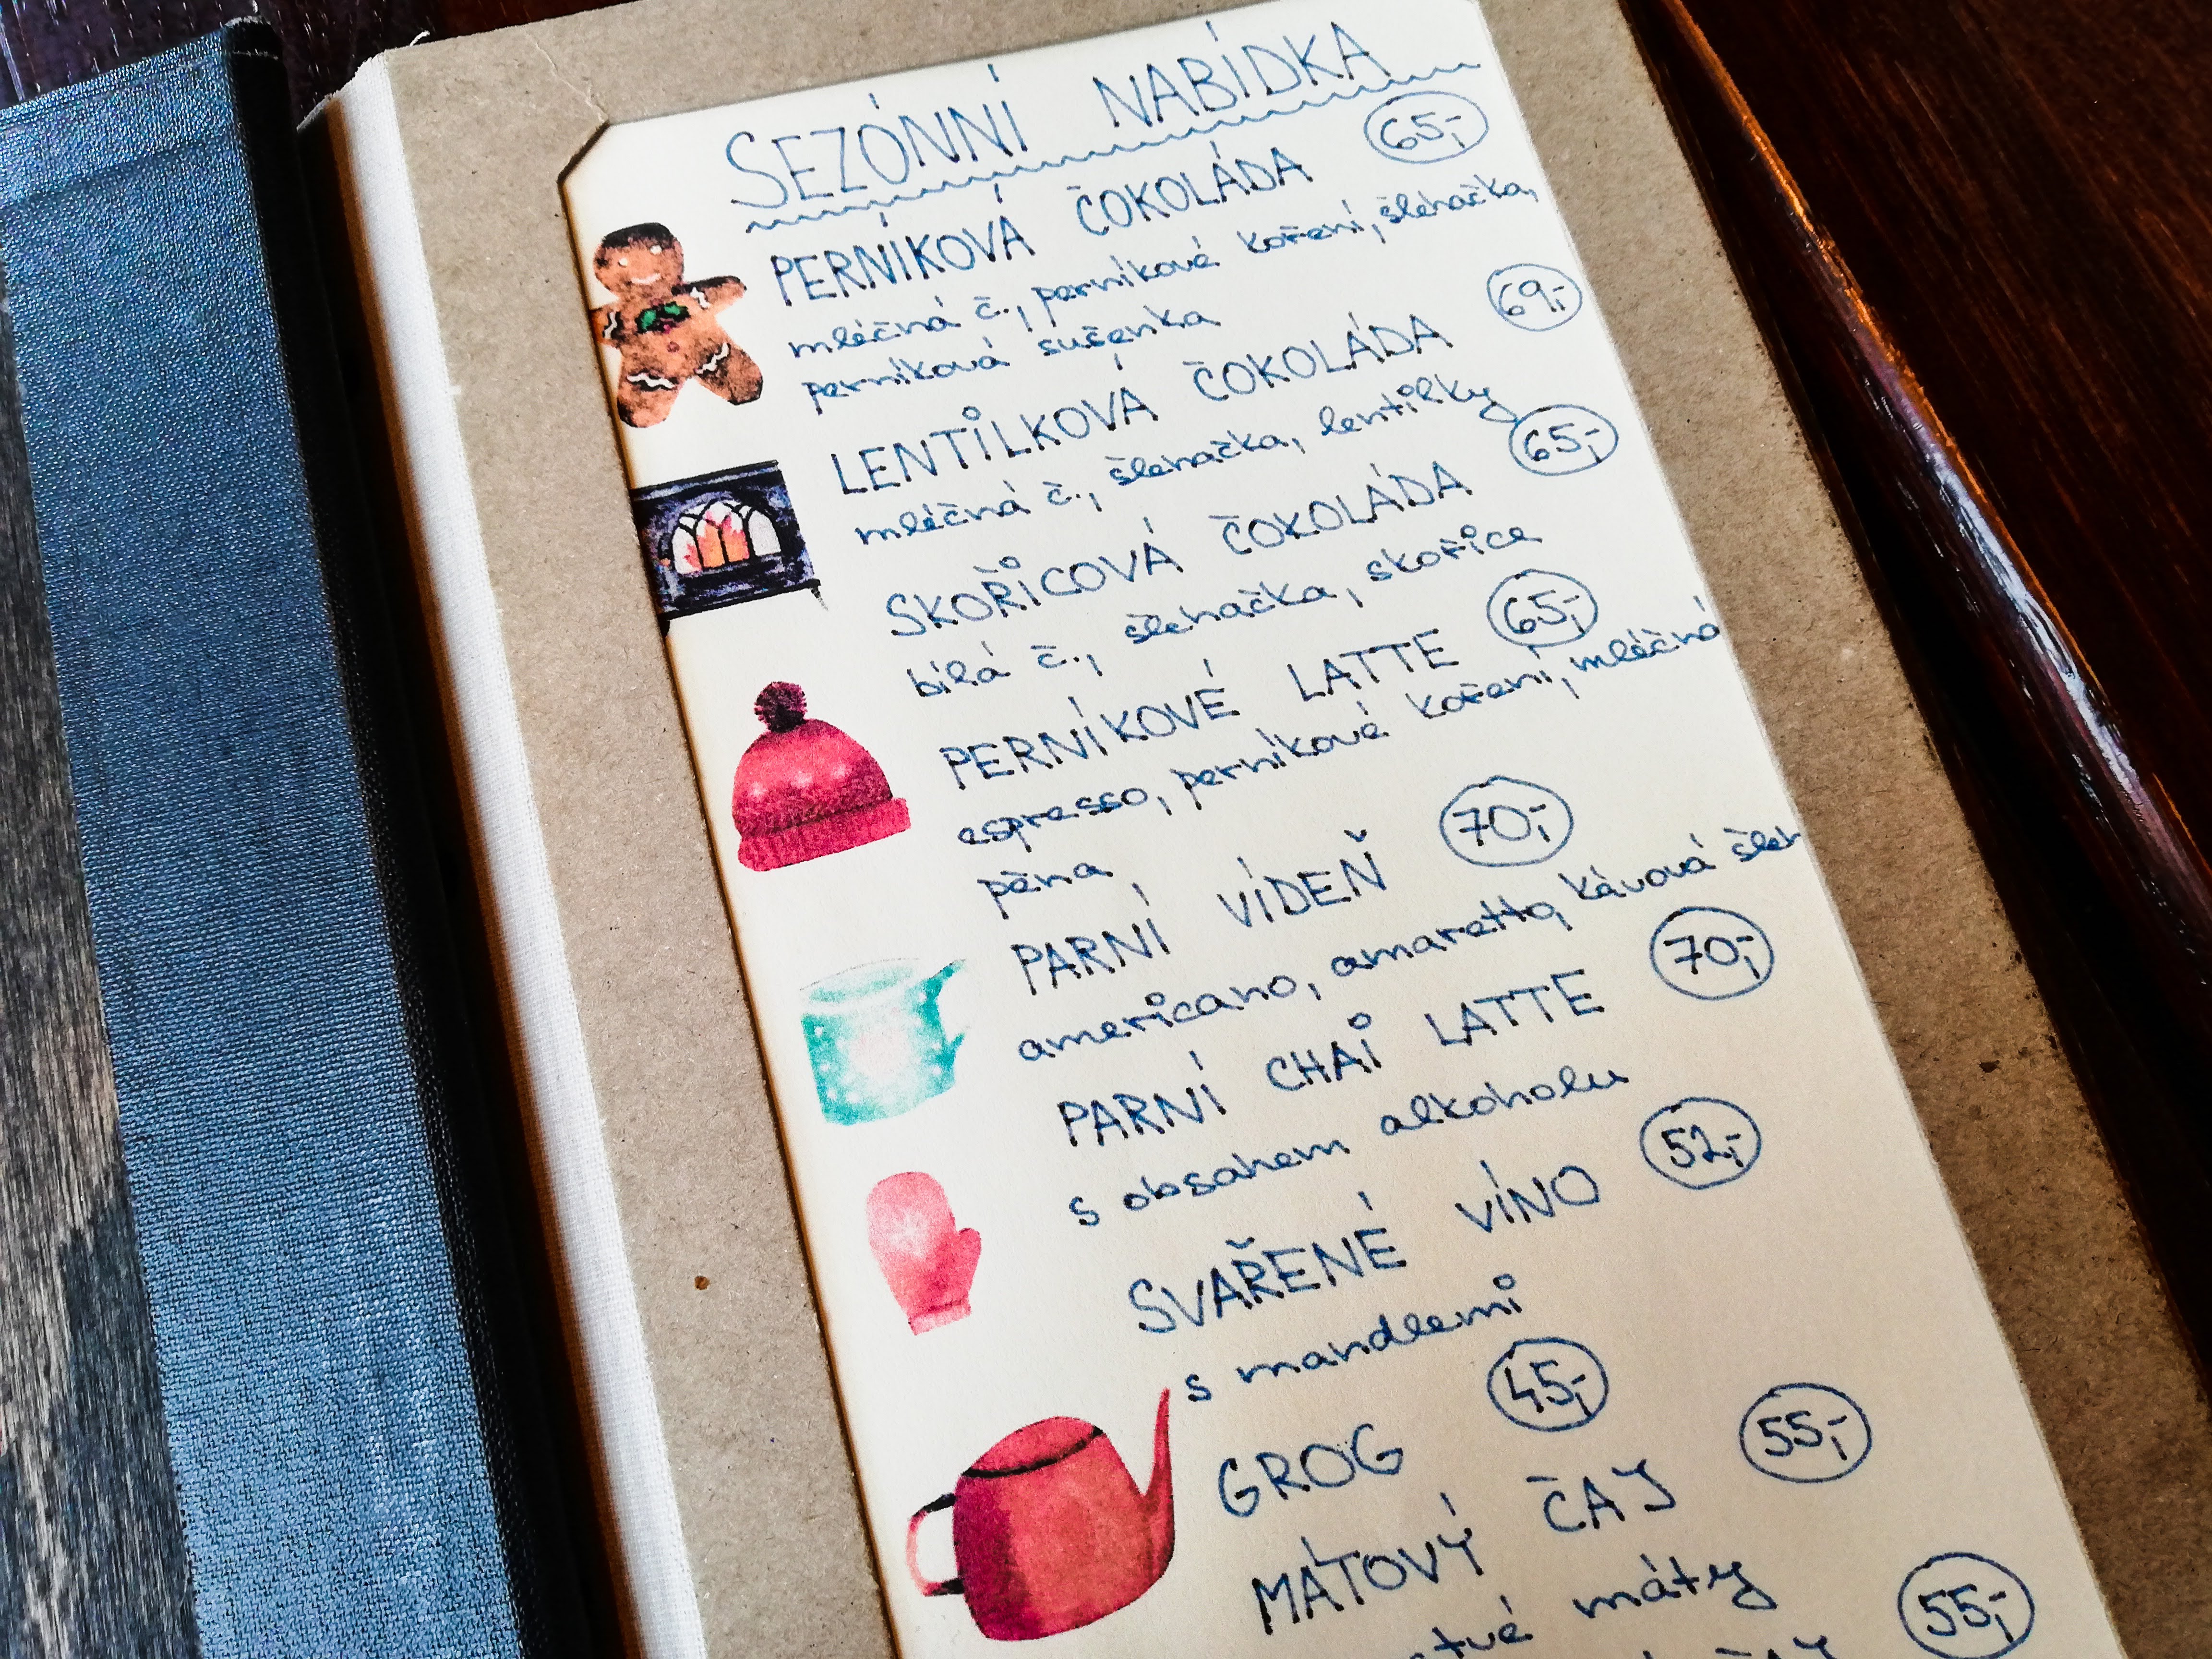 SEZÓNNÍ NABÍDKA
PERNÍKOVÁ ČOKOLÁDA 65,-
mléčná č., perníkové koření, šlehačka,
perníková sušenka
LENTILKOVÁ ČOKOLÁDA 69,-
mléčná č., šlehačka, lentilky
SKOŘICOVÁ ČOKOLÁDA 65,-
bílá č., šlehačka, skořice
PERNÍKOVÉ LATTE 65,-
espresso, perníkové koření, mléčná
pěna
PARNÍ VÍDEŇ 70,-
americano, amaretto, kávová šleh
PARNÍ CHAI LATTE 70,-
s obsahem alkoholu
SVAŘENÉ VÍNO 52,-
s mandlemi
GROG 45,-
MÁTOVÝ ČAJ 55,-
máty
55,-